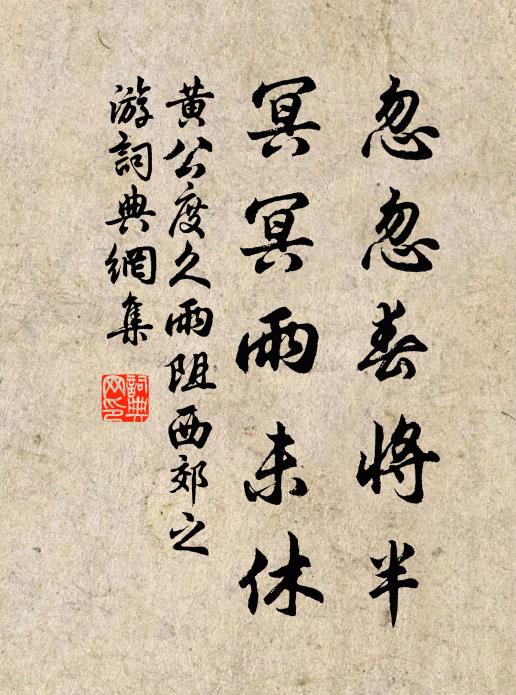 忽忽春將半
冥冥雨未休
黃公度久雨阻西郊之
游詞典網集
詞典
网印